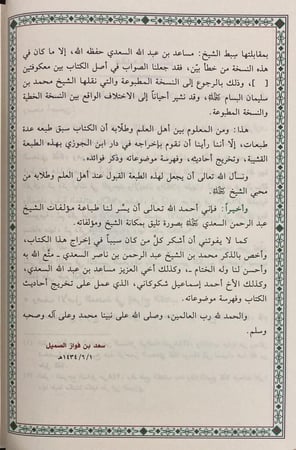 بمقابلتها سِبط الشيخ: مساعد بن عبد الله السعدي حفظه الله، إلا ما كان في
هذه النسخة من خطأ بيّن، فقد جعلنا الصواب في أصل الكتاب بين معكوفتين
[ ]، وذلك بالرجوع إلى النسخة المطبوعة والتي نقلها الشيخ محمد بن
سليمان البسام رَحِمَهُ اللهُ، وقد نشير أحياناً إلى الاختلاف الواقع بين النسخة الخطية
والنسخة المطبوعة.
هذا: ومن المعلوم بين أهل العلم وطلّابه أن الكتاب سبق طبعه عدة
طبعات، إلّا أننا رأينا أن نقوم بإخراجه في دار ابن الجوزي بهذه الطبعة
القشيبة، وتخريج أحاديثه، وفهرسة موضوعاته وذكر فوائده.
ونسأل الله تعالى أن يجعل لهذه الطبعة القبول عند أهل العلم وطلابه من
محبي الشيخ رَحِمَهُ اللهُ.
وأخيراً: فإني أحمد الله تعالى أن يسَّر لنا طباعة مؤلفات الشيخ
عبد الرحمن السعدي رَحِمَهُ اللهُ بصورة تليق بمكانة الشيخ ومؤلفاته.
كما لا يفوتني أن أشكر كلَّ من كان سبباً في إخراج هذا الكتاب،
وأخص بالذكر محمد بن الشيخ عبد الرحمن بن ناصر السعدي ـ متّع الله به
وأحسن لنا وله الختام ـ، وكذلك أخي العزيز مساعد بن عبد الله السعدي،
وكذلك الأخ أحمد إسماعيل شكوكاني، الذي عمل على تخريج أحاديث
الكتاب وفهرسة موضوعاته.
والحمد لله رب العالمين، وصلى الله على نبيّنا محمد وعلى آله وصحبه
وسلم.
سعد بن فواز الصميل
١٤٣٤/٦/١هـ